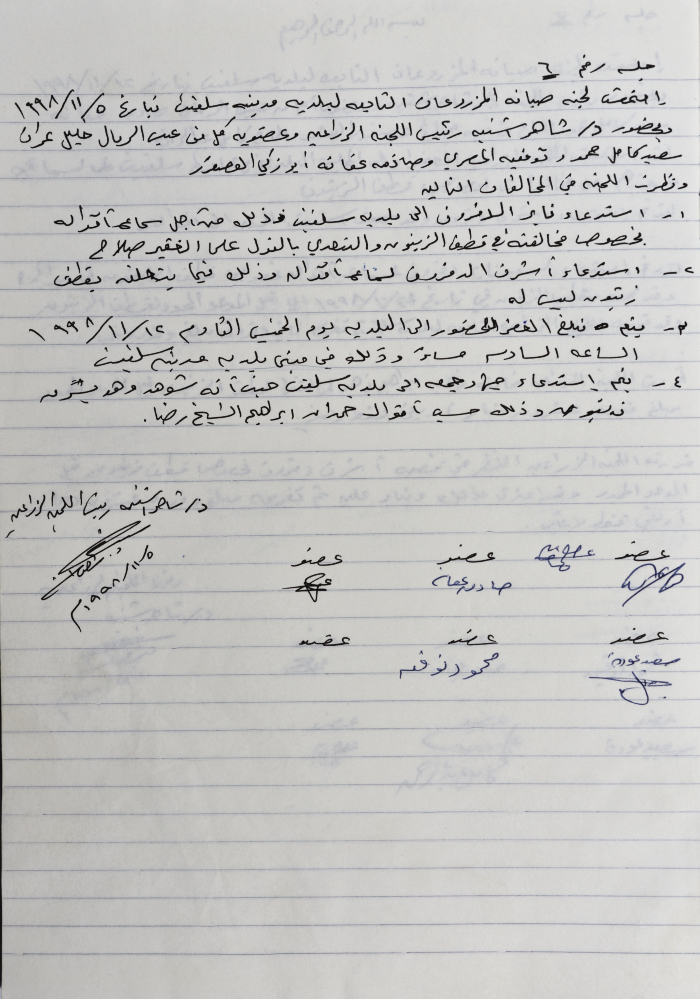 جلسه رقم ٦
اجتمعت لجنة صيانة المزروعات التابعه لبلديه مدينه سلفيت بتاريخ ١٩٩٨/١١/٥
وبحضور د/ شاهر اشتيه رئيس اللجنه الزراعيه وعضويه كل من عبد الرحمن خليل عمران
سعيد كامل محمود توفيق المصري وصادق عفانه أبو زكي
ونظرت اللجنه في المخالفات التاليه
١- استدعاء فايز الى بلديه سلفيت وذلك من اجل سماع أقواله
بخصوص مخالفته في قطف الزيتون والتعدي بالنزل على الفقير صلاح
٢- استدعاء أشرف لسماع أقواله وذلك فيما يتعلق بقطف
زيتون ليس له
٣- يتم تبلغ الحضور الى البلديه يوم الخميس القادم ١٩٩٨/١١/١٢
الساعه السادسه مساءً وذلك في مبنى بلديه مدينة سلفيت
٤- يتم استدعاء جهاد جمعه الى بلديه سلفيت حيث أنه شوهد وهو
وذلك حسب أقوال حمدان ابراهيم الشيخ رضا.
د/ شاهر اشتيه رئيس اللجنه الزراعيه
١٩٩٨/١١/٥م
عضو عضو عضو
صادق عفانه
عضو عضو عضو
سعيد عودة محمود توفيق